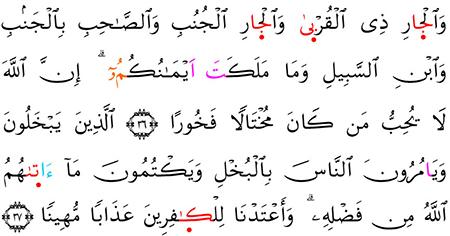 وَٱلْجَارِ ذِى ٱلْقُرْبَىٰ وَٱلْجَارِ ٱلْجُنُبِ وَٱلصَّٰحِبِ بِٱلْجَنۢبِ
وَٱبْنِ ٱلسَّبِيلِ وَمَا مَلَكَتَ اَيْمَٰنُكُمُۥٓ ۗ إِنَّ ٱللَّهَ
لَا يُحِبُّ مَن كَانَ مُخْتَالًا فَخُورًا ٣٦ ٱلَّذِينَ يَبْخَلُونَ
وَيَامُرُونَ ٱلنَّاسَ بِٱلْبُخْلِ وَيَكْتُمُونَ مَآ ءَاتَىٰهُمُ
ٱللَّهُ مِن فَضْلِهِۦ ۗ وَأَعْتَدْنَا لِلْكَٰفِرِينَ عَذَابًا مُّهِينًا ٣٧